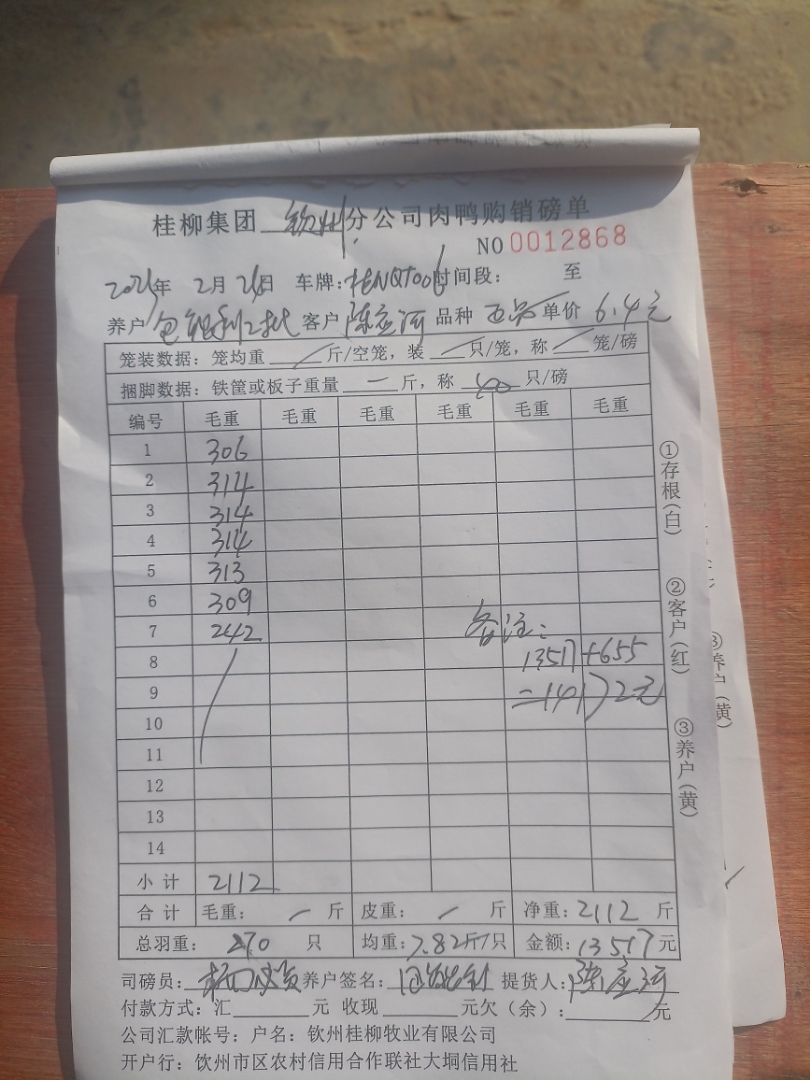 桂柳集团 钦州 分公司肉鸭购销磅单
NO 0012868
年 2月 24日 车牌: 时间段: 至
养户 客户 陈应河 品种 单价 6.4元
笼装数据: 笼均重 / 斤/空笼, 装 / 只/笼, 称 / 笼/磅
捆脚数据: 铁筐或板子重量 一 斤, 称 40 只/磅
编号 毛重 毛重 毛重 毛重 毛重 毛重
1 306
2 314
3 314
4 314
5 313
6 309
7 242
备注:
8
13517+655
9
=14172元
10
11
12
13
14
小计 2112
合计 毛重: / 斤 皮重: / 斤 净重: 2112 斤
总羽重: 270 只 均重: 7.82斤/只 金额: 13517元
司磅员: 养户签名: 提货人: 陈应河
付款方式: 汇 元 收现 元欠(余): 元
公司汇款帐号: 户名: 钦州桂柳牧业有限公司
开户行: 饮州市区农村信用合作联社大垌信用社
①存根(白)
②客户(红)
③养户(黄)
③养户(黄)